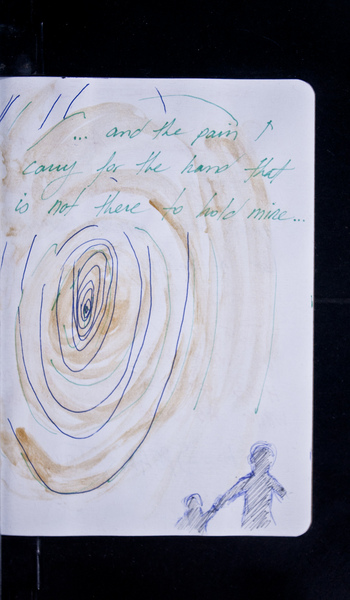 ... and the pain I
carry for the hand that
is not there to hold mine...